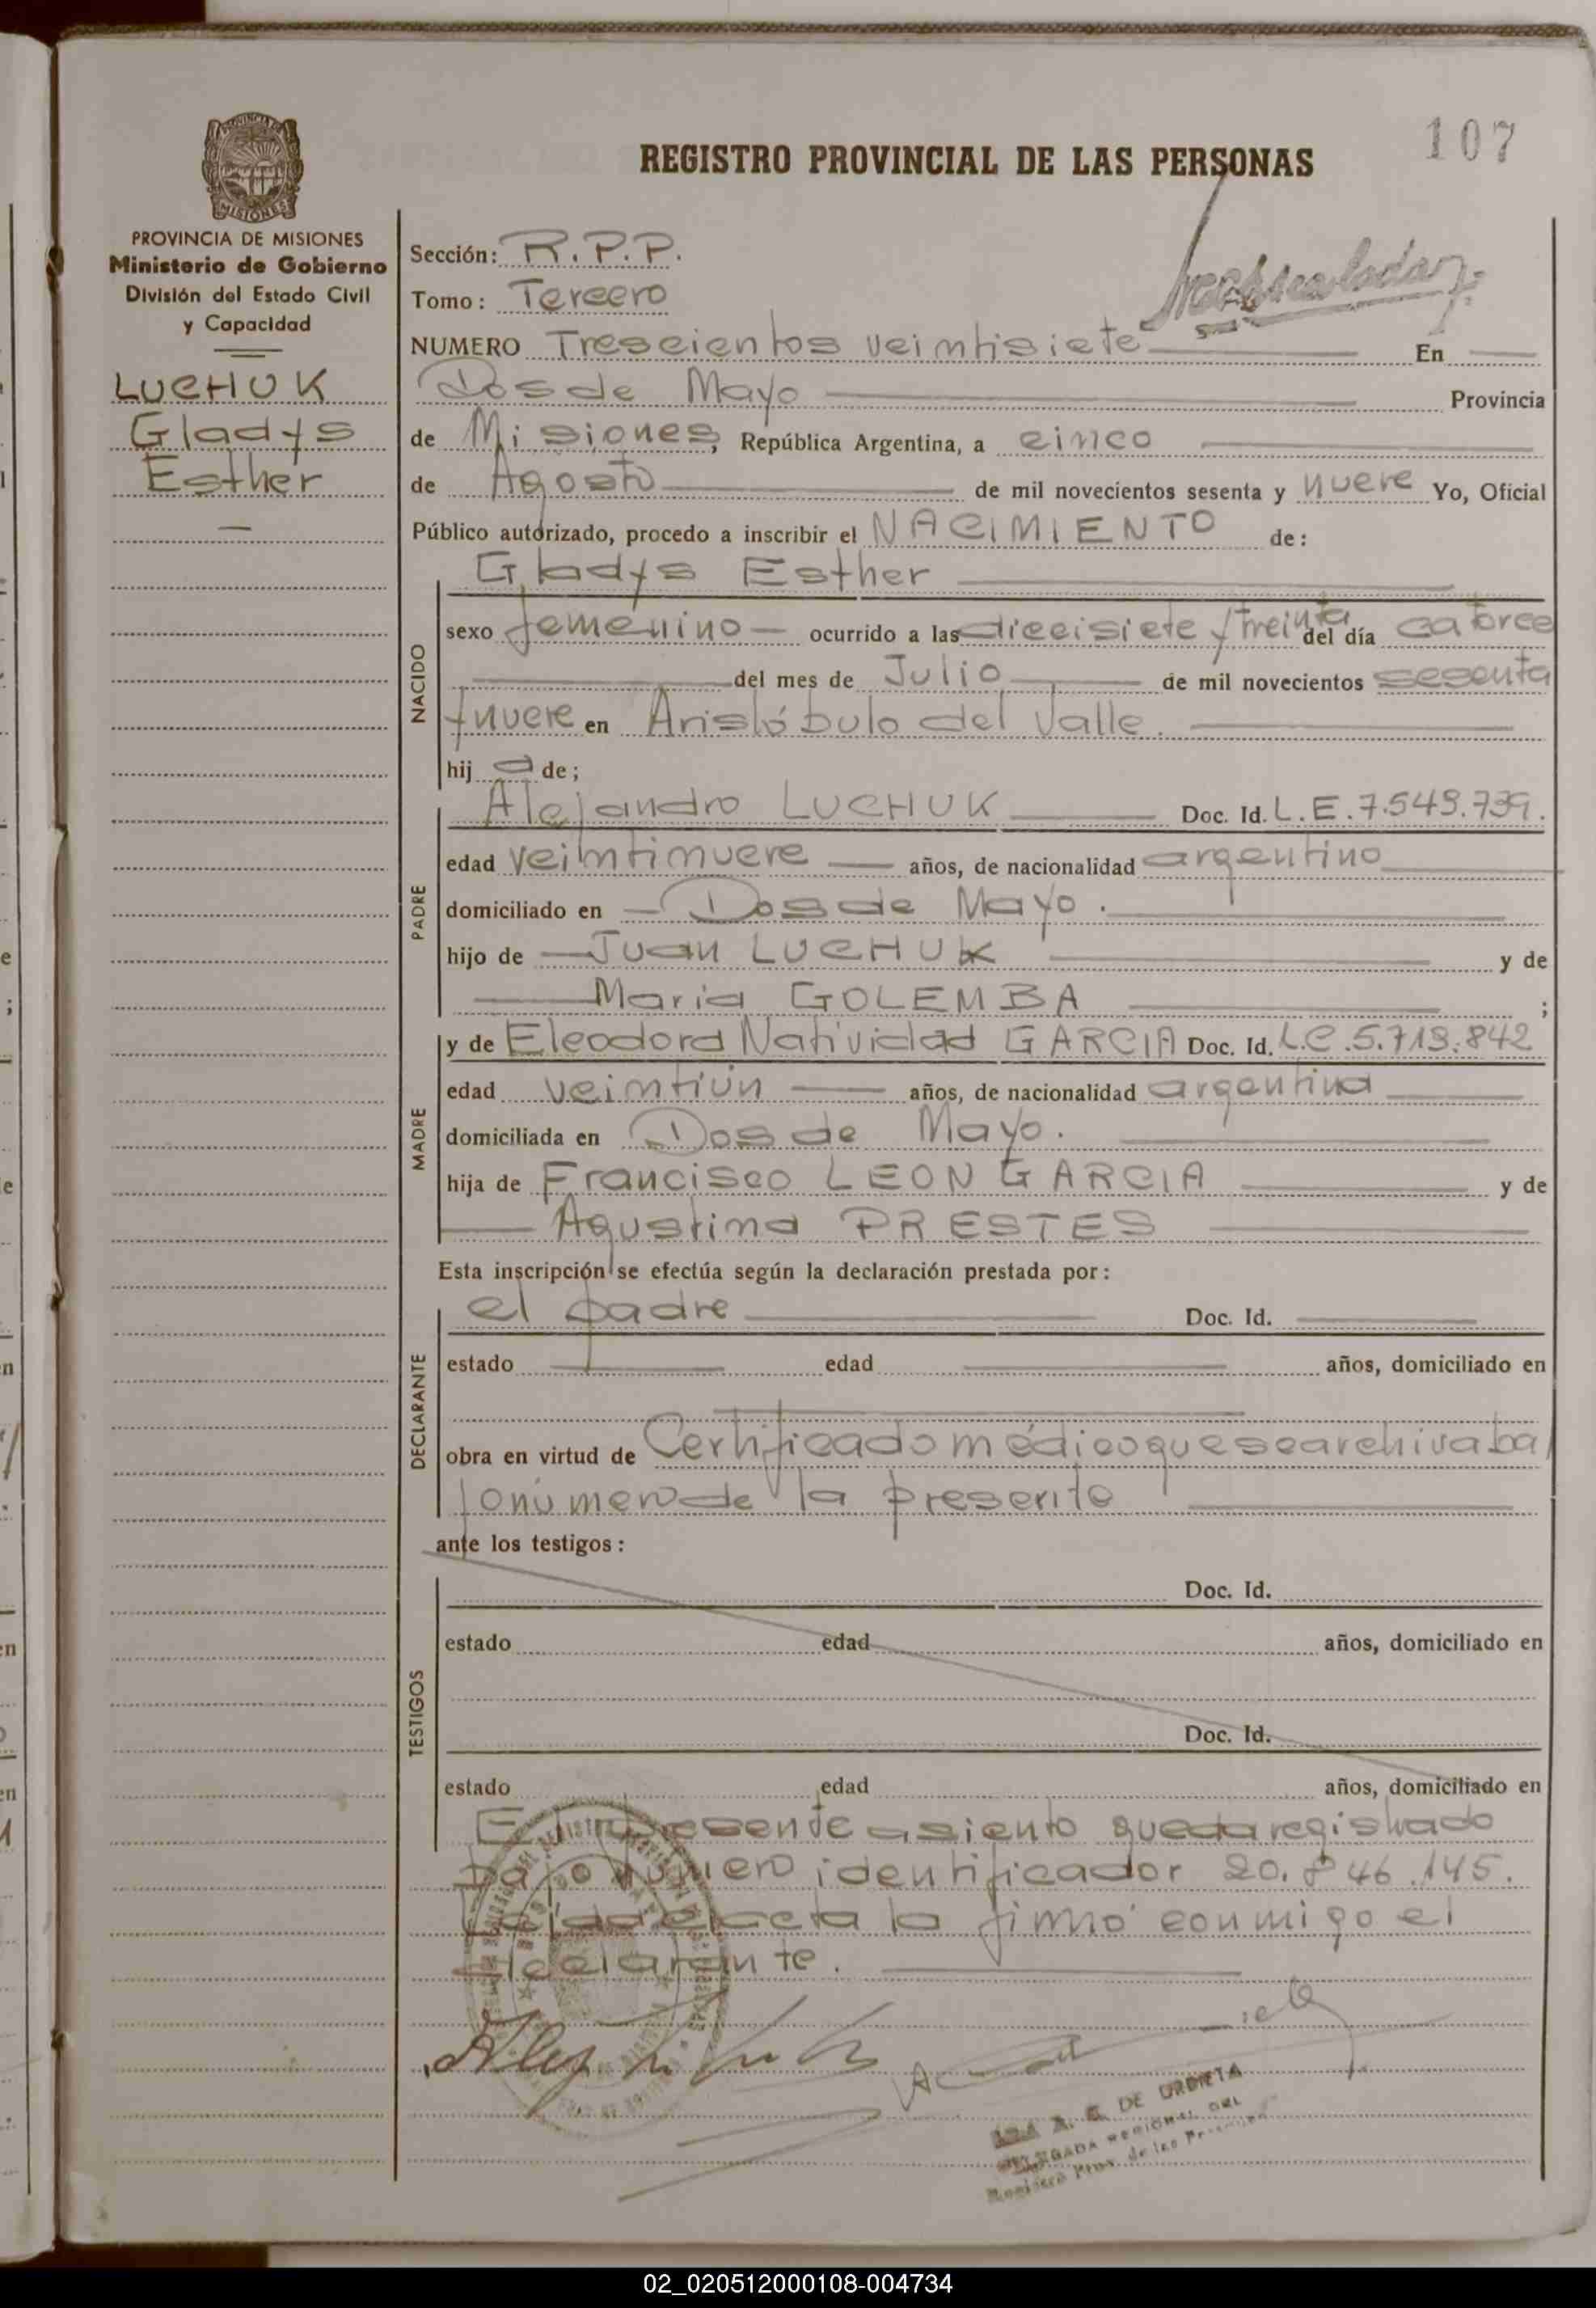 107
REGISTRO PROVINCIAL DE LAS PERSONAS
PROVINCIA DE MISIONES
Ministerio de Gobierno
División del Estado Civil
y Capacidad
LUCHUK
Gladys
Esther
Sección: R.P.P.
Tomo: Tercero
NUMERO Trescientos veintisiete En
Dos de Mayo Provincia
de Misiones, República Argentina, a cinco
de Agosto de mil novecientos sesenta y nueve Yo, Oficial
Público autorizado, procedo a inscribir el NACIMIENTO de:
Gladys Esther
NACIDO
sexo femenino ocurrido a las diecisiete y treinta del día catorce
del mes de Julio de mil novecientos sesenta
y nueve en Aristóbulo del Valle.
hij a de;
PADRE
Alejandro LUCHUK Doc. Id. L.E. 7.549.739.
edad veintinueve años, de nacionalidad argentino
domiciliado en Dos de Mayo.
hijo de Juan LUCHUK y de
Maria GOLEMBA ;
MADRE
y de Eleodora Natividad GARCIA Doc. Id. L.C. 5.713.842
edad veintiún años, de nacionalidad argentina
domiciliada en Dos de Mayo.
hija de Francisco LEON GARCIA y de
Agustina PRESTES
Esta inscripción se efectúa según la declaración prestada por:
DECLARANTE
el padre Doc. Id.
estado edad años, domiciliado en
obra en virtud de Certificado médico que se archiva ba
jo número de la presente
ante los testigos:
TESTIGOS
Doc. Id.
estado edad años, domiciliado en
Doc. Id.
estado edad años, domiciliado en
El presente asiento queda registrado
bajo número identificador 20.846.145.
Leída el acta la firmó conmigo el
declarante.
A. C. DE URDIETA
DELEGADA REGIONAL DEL
Registro Prov. de las
02_020512000108-004734